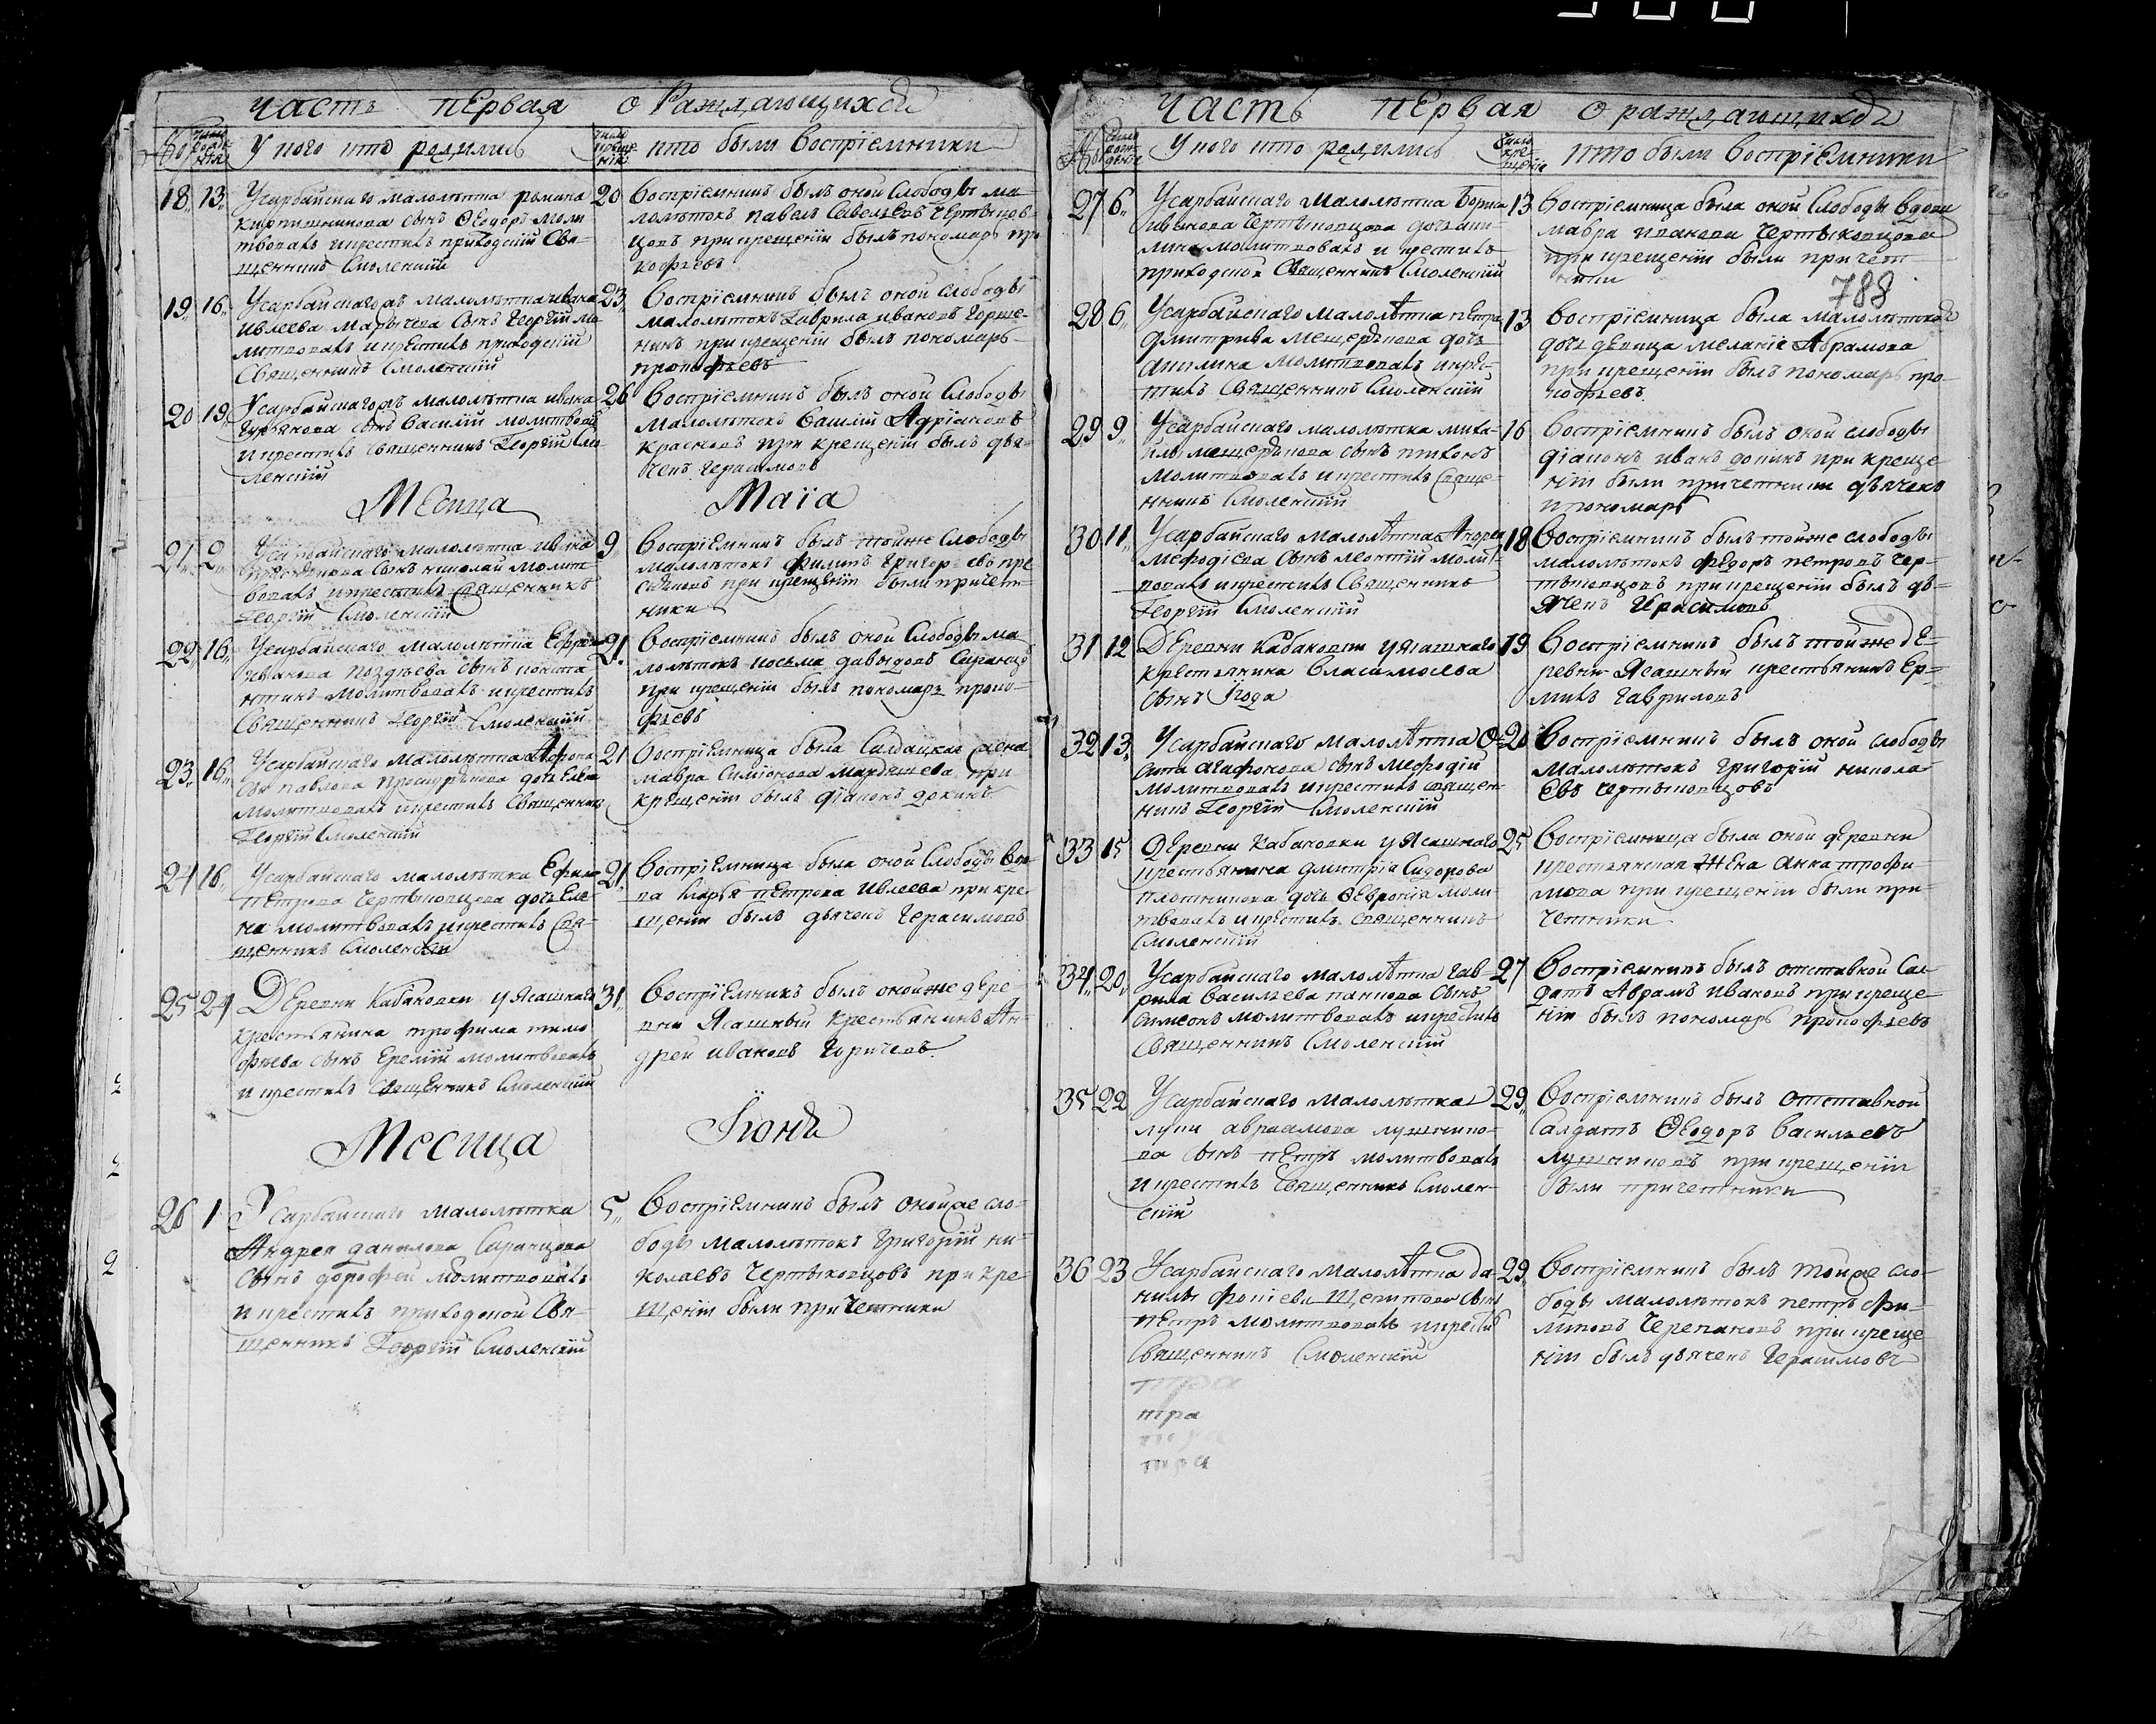 часть первая о Раждающихся
У кого кто родились
кто были воспріемники
18 13 Усарбайскаго малолѣтка
Кирпишникова сынъ Ѳеодоръ моли
твовалъ и крестилъ приходскій Свя-
щенникъ Смоленскій
20 Воспріемникъ былъ оной Слободы ма-
лолѣтокъ Павелъ Савельевъ Чертыков-
цовъ при крещеніи былъ пономарь про
кофьевъ
19 16 Усарбайскаго малолѣтка Ивана
Ивлева сынъ Георгій мо
литвовалъ и крестилъ приходскій
Священникъ Смоленскій
23 Воспріемникъ былъ оной слободы
малолѣтокъ Гаврила Ивановъ Горше-
нинъ при крещеніи былъ пономарь
прокофьевъ
20 19 Усарбайскаго малолѣтка Ивана
сынъ Василій молитвовалъ
и крестилъ Священникъ Георгій Смо
ленскій
26 Воспріемникъ былъ оной Слободы
малолѣтокъ Василій Адріановъ
Красковъ при крещеніи былъ дья-
чекъ Герасимовъ
Месица Маіа
21 2 Усарбайскаго малолѣтка Ивана
сынъ Николай молит
вовалъ и крестилъ Священникъ
Георгій Смоленскій
9 Воспріемникъ былъ тойже Слободы
малолѣтокъ Филипъ Григорьевъ пре
сняковъ при крещеніи были причет-
ники
22 16 Усарбайскаго малолѣтка
Иванова Поздѣева сынъ конста
нтинъ молитвовалъ и крестилъ
Священникъ Георгій Смоленскій
21 Воспріемникъ былъ оной Слободы ма
лолѣтокъ Косьма Давыдовъ Саранцовъ
при крещеніи былъ пономарь проко-
фьевъ
23 16 Усарбайскаго малолѣтка Афона
сія Павлова дочь Елена
молитвовалъ и крестилъ Священникъ
Георгій Смоленскій
21 Воспріемница была Салдацкая жена
Мавра Симіонова при
крещеніи былъ діаконъ докинъ
24 16 Усарбайскаго малолѣтка Ефима
Петрова Чертыковцова дочь Еле-
на молитвовалъ и крестилъ Свя-
щенникъ Смоленскій
21 Воспріемница была оной Слободы вдо-
ва Марья Петрова Ивлеева при кре-
щеніи былъ дьячекъ Герасимовъ
25 24 Деревни Кабановки у Ясашнаго
крестьянина трофима тимо
фѣева сынъ Еремій молитвовалъ
и крестилъ священникъ Смоленскій
31 Воспріемникъ былъ онойже дере-
вни Ясашный крестьянинъ Ан-
дрей Ивановъ Горичевъ
Месица Іюня
26 1 Усарбайскаго малолѣтка
Андрея Данилова Саранцова
Сынъ Дорофей молитвовалъ
и крестилъ приходской Свя-
щенникъ Георгій Смоленскій
5 Воспріемникъ былъ онойже сло-
боды малолѣтокъ Григорій ни-
колаевъ Чертыковцовъ при кре
щеніи были причетники
часть первая о раждающихся
У кого кто родились
кто были воспріемники
788
27 6 Усарбайскаго Малолѣтка Бориса
Иванова Чертыковцова дочь аки-
лина молитвовалъ и крестилъ
приходской Священникъ Смоленскій
13 Воспріемница была оной Слободы вдова
Мавра Иванова Чертыковцова
при крещеніи были причет-
ники
28 6 Усарбайскаго Малолѣтка Петра
Дмитріева Мещерякова дочь
акилина молитвовалъ и кре-
стилъ Священникъ Смоленскій
13 Воспріемница была малолѣткова
дочь девица Меланіе Абрамова
при крещеніи былъ пономарь про-
кофьевъ
29 9 Усарбайскаго малолѣтка Миха-
йлы мещерякова сынъ тихонъ
Молитвовалъ и крестилъ Свяще-
нникъ Смоленскій
16 Воспріемникъ былъ оной слободы
діаконъ Иванъ докинъ при креще
ніи были причетники дьячекъ
и пономарь
30 11 Усарбайскаго малолѣтка Андрея
Мефодіева Сынъ Леонтій Молит-
вовалъ и крестилъ Священникъ
Георгій Смоленскій
18 Воспріемникъ былъ тойже слободы
малолѣтокъ Федоръ Петровъ Чер-
тыковцовъ при крещеніи былъ дь-
ячекъ Герасимовъ
31 12 Деревни Кабановки у Ясашнаго
крестьянина Власа Мосѣева
Сынъ Іюда
19 Воспріемникъ былъ тойже де-
ревни Ясашный крестьянинъ Ер-
милъ Гавриловъ
32 13 Усарбайскаго малолѣтка О-
сипа Агафонова сынъ Мефодій
молитвовалъ и крестилъ священ-
никъ Георгій Смоленскій
20 Воспріемникъ былъ оной слободы
Малолѣтокъ Григорій никола
евъ Чертыковцовъ
33 15 Деревни Кабановки у Ясашнаго
крестьянина Дмитрія Сидорова
плотникова дочь Ѳевронія моли-
твовалъ и крестилъ священникъ
Смоленскій
25 Воспріемница была оной деревни
крестьянская жена Анна трофи-
мова при крещеніи были при-
четники
34 20 Усарбайскаго малолѣтка Гав-
рила Васильева панкова Сынъ
Симеонъ молитвовалъ и крестилъ
Священникъ Смоленскій
27 Воспріемникъ былъ отставной Сал
датъ Аврамъ Ивановъ при креще
ніи былъ пономарь прокофьевъ
35 22 Усарбайскаго Малолѣтка
луки авраамова лушнико-
ва сынъ Петръ молитвовалъ
и крестилъ Священникъ Смолен-
скій
29 Воспріемникъ былъ отставной
Салдатъ Ѳеодоръ Васильевъ
лушниковъ при крещеніи
были причетники
36 23 Усарбайскаго малолѣтка Да-
нилы Фокіева Щепитова сынъ
Петръ молитвовалъ и крестилъ
Священникъ Смоленскій
29 Воспріемникъ былъ тойже сло-
боды малолѣтокъ Петръ Фи-
липовъ Черепановъ при креще
ніи былъ дьячекъ Герасимовъ
тра
тра
тра
тра